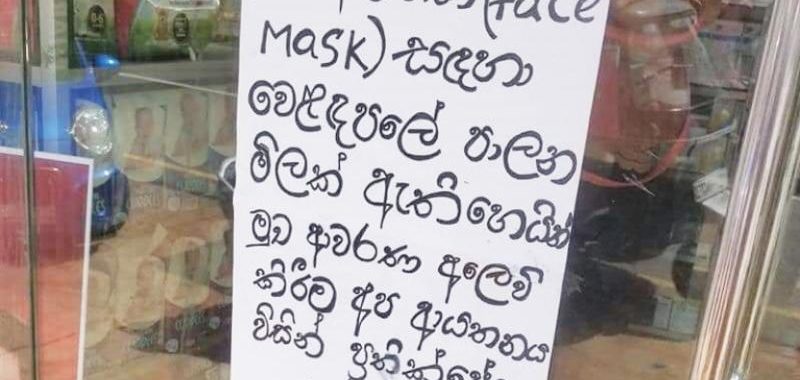 (Face
MASK) සඳහා
වෙළඳපලේ පාලන
මිලක් ඇති හෙයින්
මුව ආවරණ අලෙවි
කිරීම අප ආයතනය
විසින්